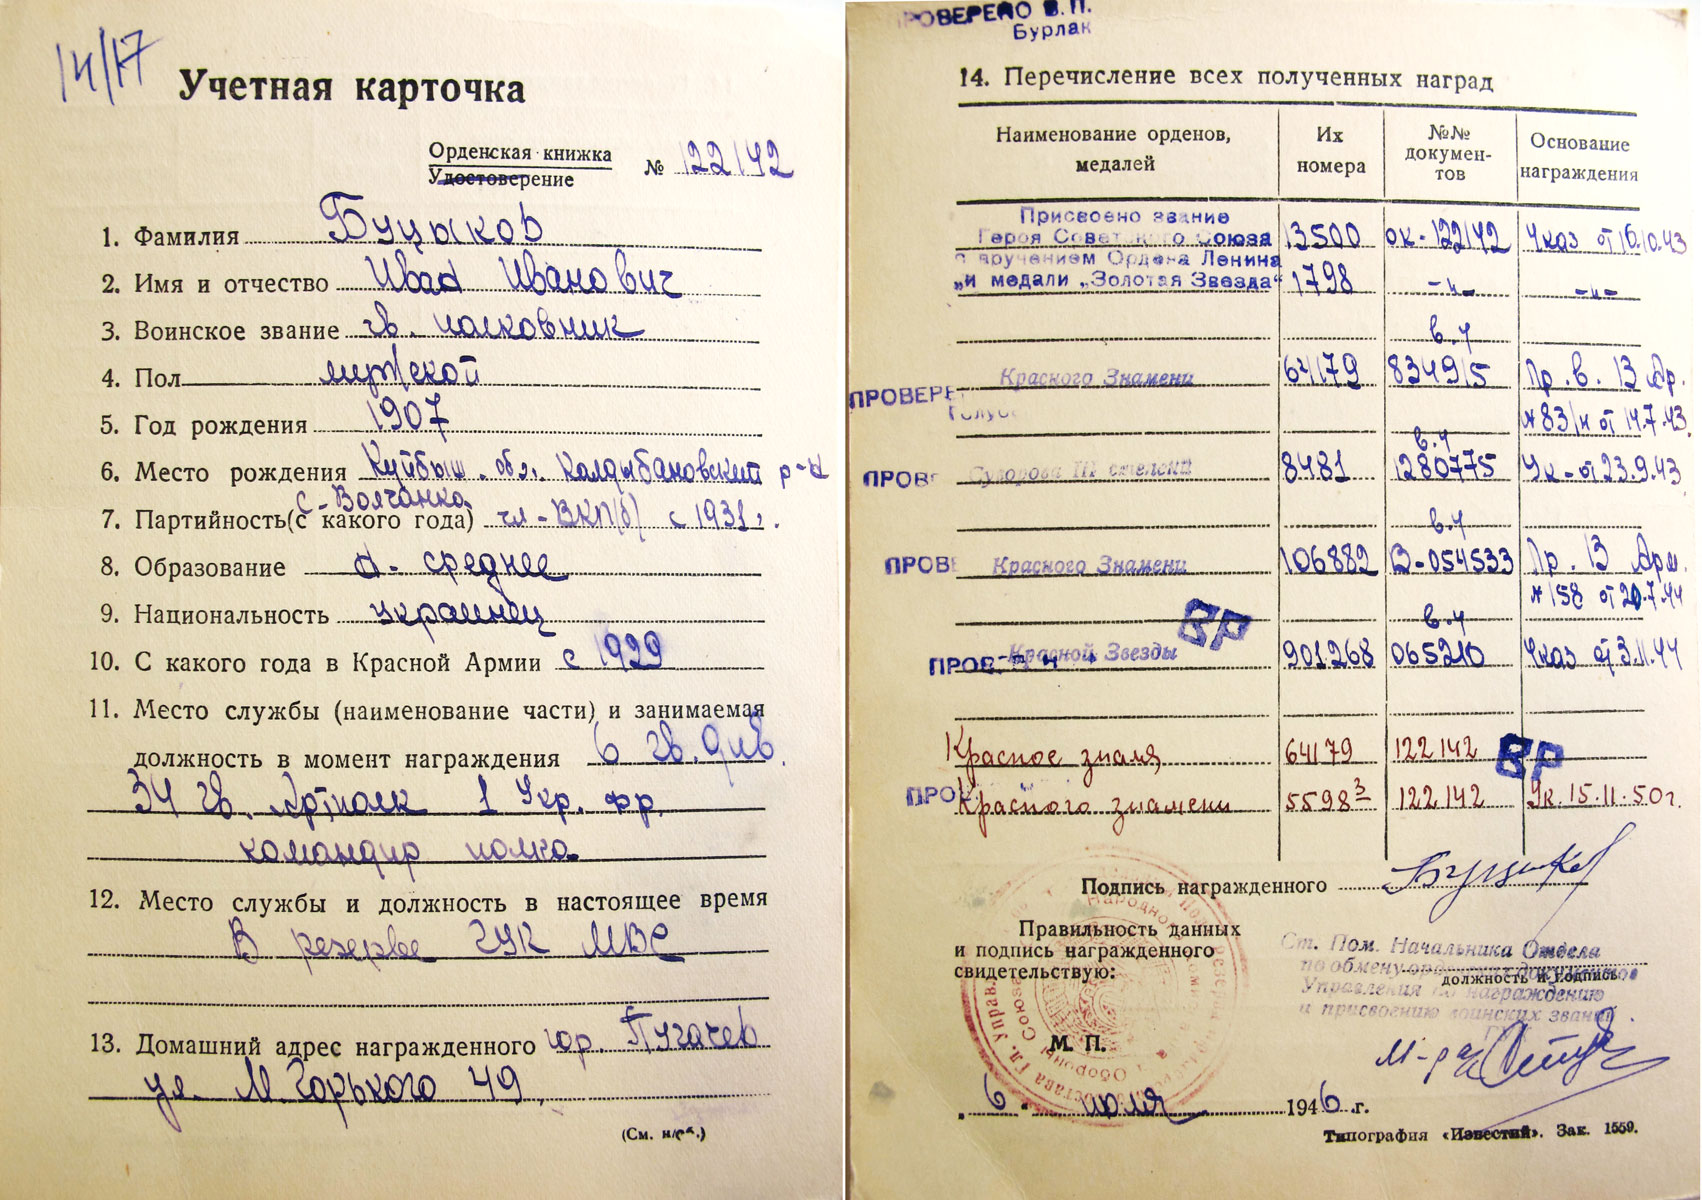 14/17
Учетная карточка
Орденская книжка
Удостоверение
№ 122142
1. Фамилия Буцыков
2. Имя и отчество Иван Иванович
3. Воинское звание гв. полковник
4. Пол мужской
5. Год рождения 1907
6. Место рождения Куйбыш. обл. Колдыбановский р-н
с-Волчанка
7. Партийность (с какого года) чл-ВКП(б) с 1931г.
8. Образование н-среднее
9. Национальность украинец
10. С какого года в Красной Армии с 1929
11. Место службы (наименование части) и занимаемая
должность в момент награждения 6 гв. див.
34 гв. Артполк 1 Укр. фр.
командир полка
12. Место службы и должность в настоящее время
В резерве ГУК МВС
13. Домашний адрес награжденного гор. Пугачев
ул. М. Горького 49
(См. н/об.)
ПРОВЕРЕНО В. П.
Бурлак
14. Перечисление всех полученных наград
Наименование орденов, медалей
Их номера
№№ документов
Основание награждения
Присвоено звание
Героя Советского Союза 13500 ок-122142 Указ от 16.10.43
с вручением Ордена Ленина
и медали „Золотая Звезда“ 1798 -"- -"-
в.у
ПРОВЕРЕ Красного Знамени 64179 834915 Пр. в. 13 Ар.
№83/н от 14.7.43
в.у
ПРОВ Суворова III степени 8481 1280775 Ук-от 23.9.43
в.у
ПРОВ Красного Знамени 106882 В-054533 Пр. 13 Арм.
№158 от 20.7.44
ВР в.у
ПРОВ Красной Звезды 901268 065210 Указ от 3.11.44
Красное знамя 64179 122142 ВР
ПРО Красного знамени 55983 122142 Ук. 15.11.50г.
Подпись награжденного Буцыков
Правильность данных
и подпись награжденного
свидетельствую:
Ст. Пом. Начальника Отдела
по обмену орденских документов
должность и подпись
Управления по награждению
и присвоению воинских званий
М. П.
М-р а/с
6 июля 1946 г.
Типография «Известий». Зак. 1559.